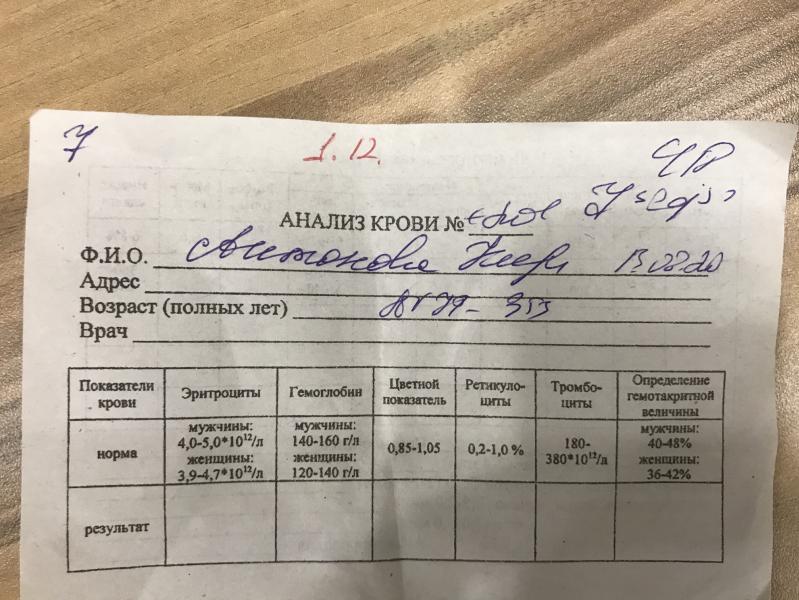 7 1.12.
АНАЛИЗ КРОВИ №
Ф.И.О. Антонова
Адрес
Возраст (полных лет)
Врач
Показатели крови Эритроциты Гемоглобин Цветной показатель Ретикуло-циты Тромбо-циты Определение гемотакритной величины
норма мужчины: 4,0-5,0*10¹²/л женщины: 3,9-4,7*10¹²/л мужчины: 140-160 г/л женщины: 120-140 г/л 0,85-1,05 0,2-1,0 % 180-380*10¹²/л мужчины: 40-48% женщины: 36-42%
результат